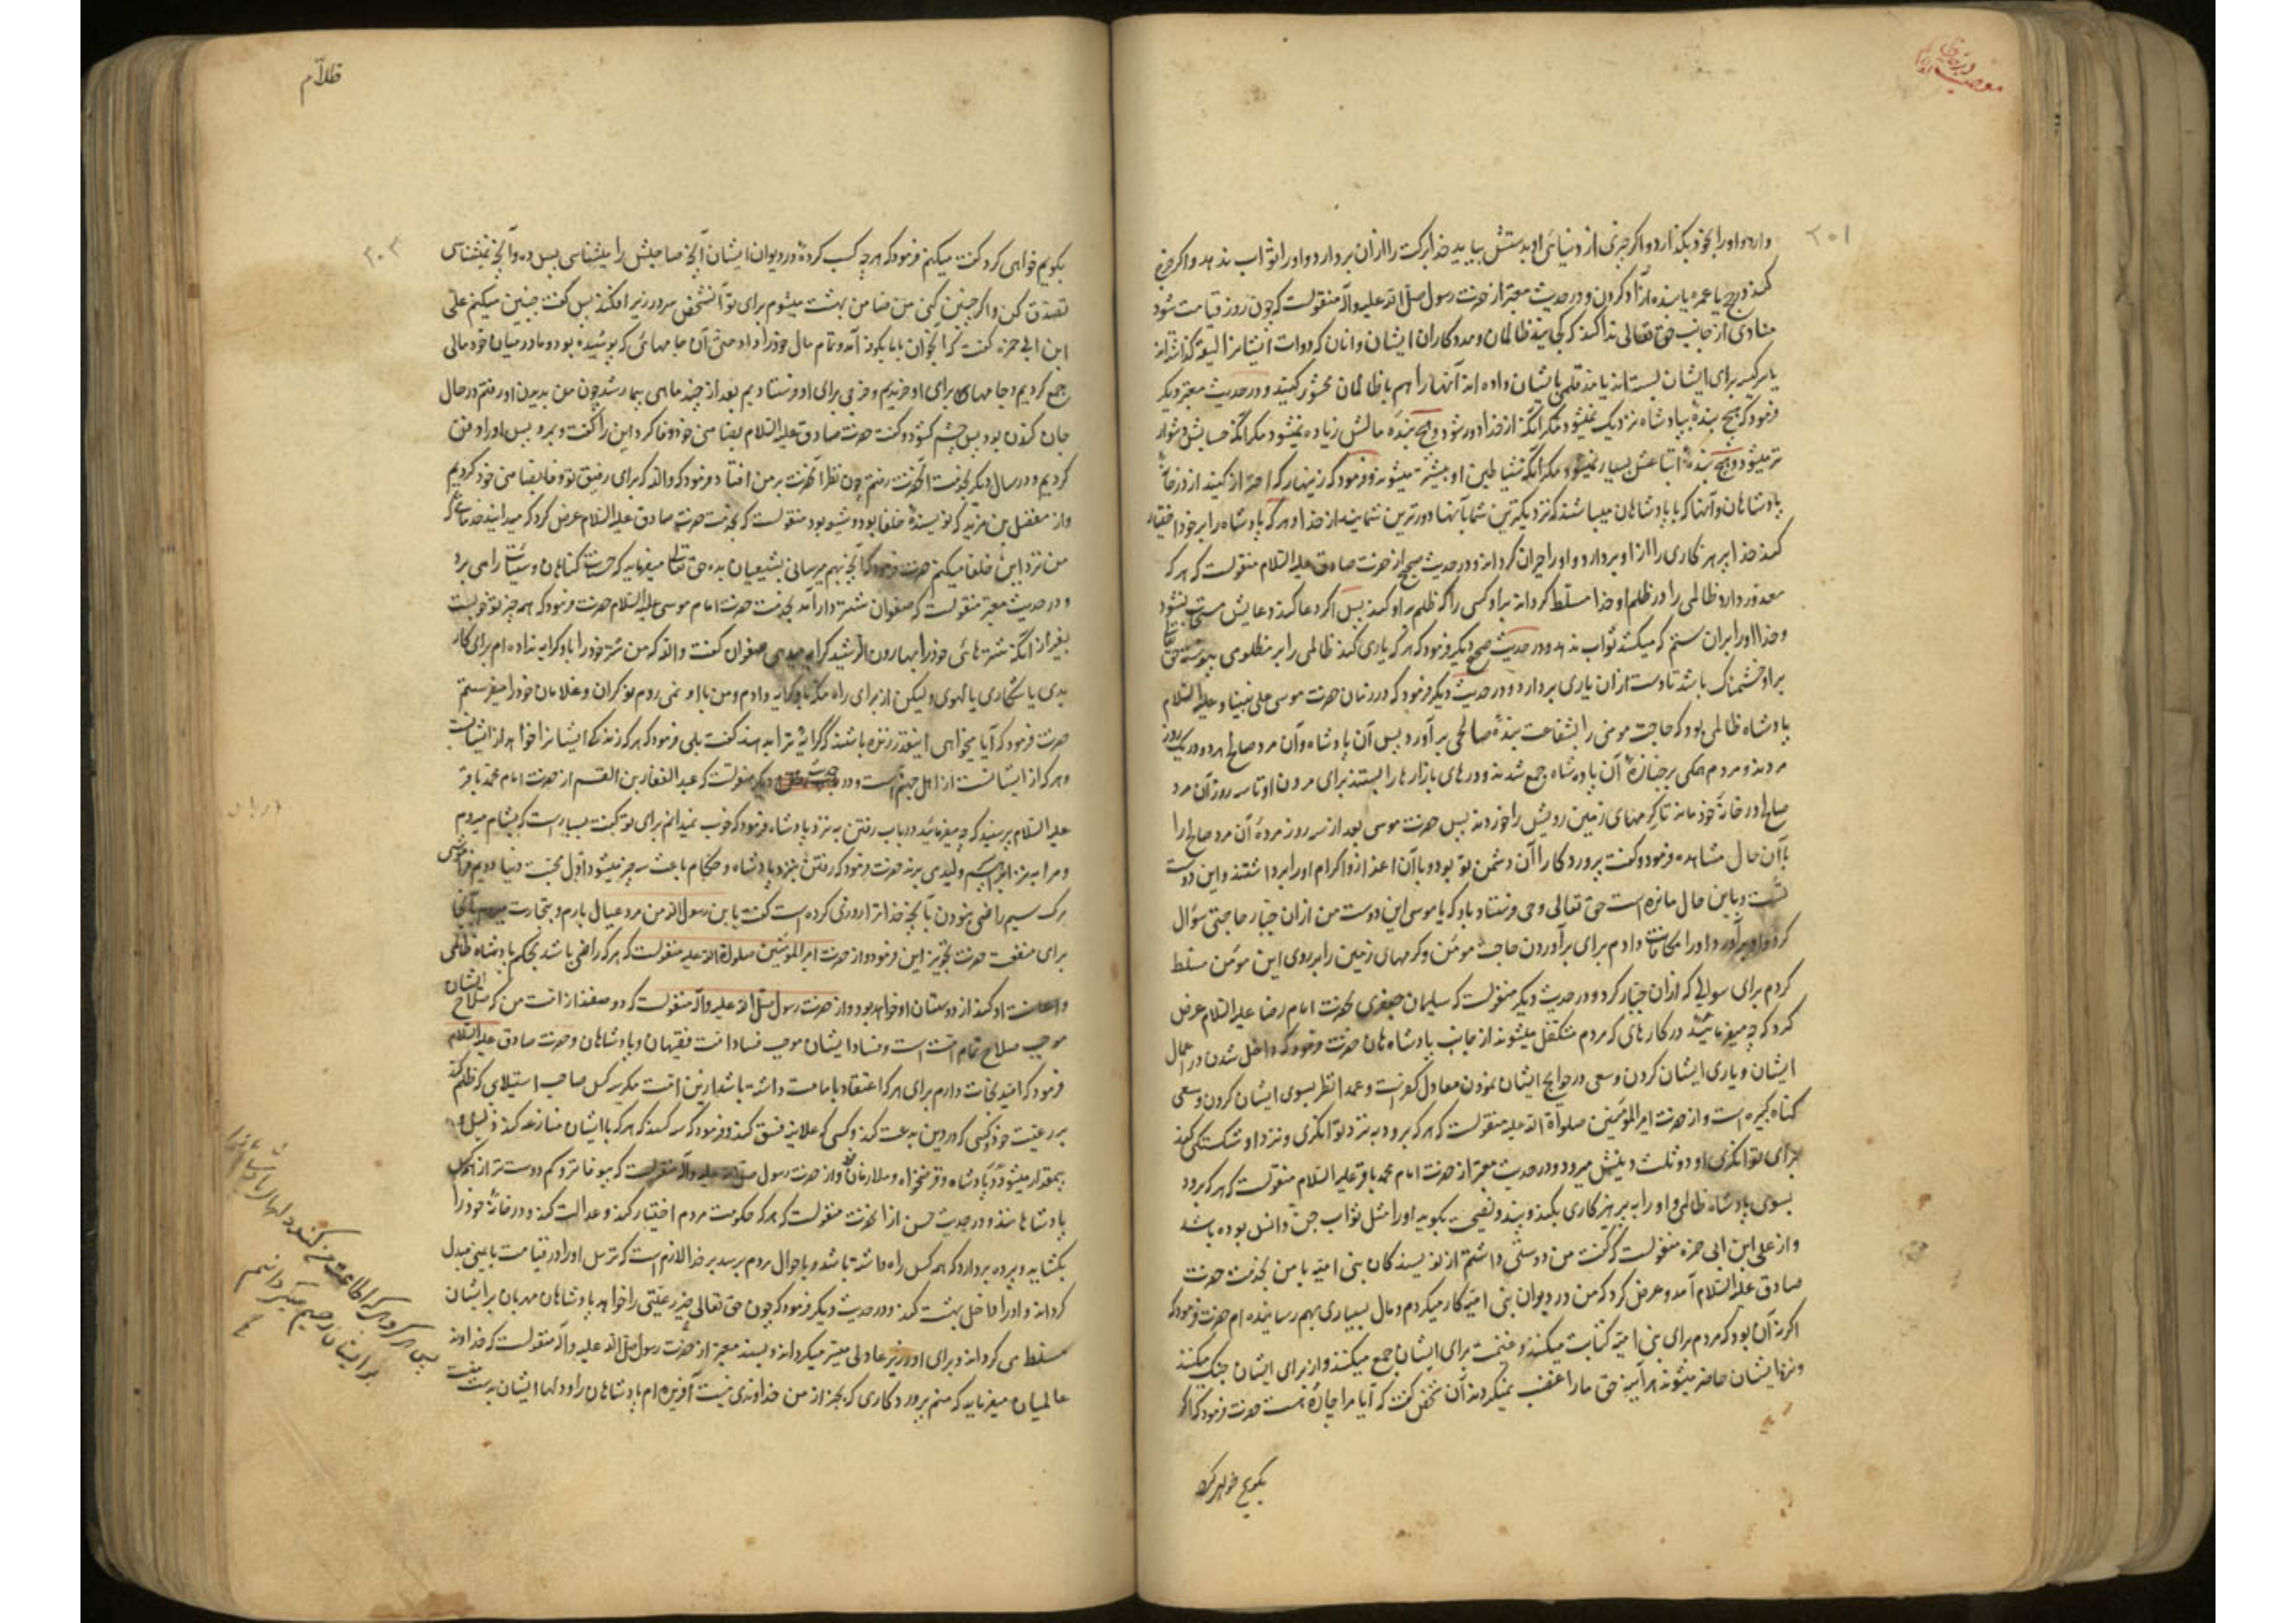 دارد او را بخود بکذارد و اکر چیزی از دنیای او بدستش بیاید خدا برکت را از آن بردارد و او را ثواب ندهد و اکر خرج
کند در حج یا عمره یا بنده آزاد کردن و در حدیث معتبر از حضرت رسول صلی الله علیه وآله منقولست که چون روز قیامت شود
منادی از جانب حق تعالی ندا کند که کجایند ظالمان و مددکاران ایشان و آنان که دوات ایشانرا لیقه کذاشته‌اند
یا سر کیسه برای ایشان بسته‌اند یا مد قلمی بایشان داده‌اند آنها را هم با ظالمان محشور کنید و در حدیث معتبر دیکر
فرمود که هیچ بندهٔ بپادشاه نزدیک نمیشود مکر آنکه از خدا دور شود و هیچ بنده مالش زیاده نمیشود مکر آنکه حسابش دشوار
تر میشود و هیچ بندهٔ اتباعش بسیار نمیشود مکر آنکه شیاطین او بیشتر میشوند و فرمود که زینهار که احتراز کنید از در خانهٔ
پادشاهان و آنها که با پادشاهان میباشند که نزدیکترین شما بآنها دورترین شمایند از خدا و هر که پادشاه را بر خود اختیار
کند خدا پرهیزکاری را از او بردارد و او را حیران کرداند و در حدیث صحیح از حضرت صادق علیه السلام منقولست که هر که
معذور دارد ظالمی را در ظلم او خدا مسلط کرداند بر او کسی را که ظلم بر او کند پس اکر دعا کند دعایش مستجاب نشود
و خدا او را بر آن ستم که میکشد ثواب ندهد و در حدیث صحیح دیکر فرمود که هر که یاری کند ظالمی را بر مظلومی پیوسته حق تعالی
بر او خشمناک باشد تا دست از آن یاری بردارد و در حدیث دیکر فرمود که در زمان حضرت موسی علی نبینا و علیه السلام
پادشاه ظالمی بود که حاجت مومنی را بشفاعت بندهٔ صالحی برآورد پس آن پادشاه و آن مرد صالح هر دو در یک روز
مردند و مردم همکی بر جنازهٔ آن پادشاه جمع شدند و درهای بازارها را بستند برای مردن او تا سه روز آن مرد
صالح در خانهٔ خود ماند تا کرمهای زمین رویش را خوردند پس حضرت موسی بعد از سه روز مردهٔ آن مرد صالح را
با آن حال مشاهده فرمود و کفت پروردکارا آن دشمن تو بود و با آن اعزاز و اکرام او را برداشتند و این دوست
تست و باین حال مانده است حق تعالی وحی فرستاد باو که یا موسی این دوست من از آن جبار حاجتی سؤال
کرد و او برآورد او را مکافات دادم برای برآوردن حاجت مومن و کرمهای زمین را بر روی این مومن مسلط
کردم برای سوالی که از آن جبار کرد و در حدیث دیکر منقولست که سلیمان جعفری بحضرت امام رضا علیه السلام عرض
کرد که چه میفرمائید در کارهای که مردم متکفل میشوند از جانب پادشاهان حضرت فرمود که داخل شدن در اعمال
ایشان و یاری ایشان کردن و سعی در حوایج ایشان نمودن معادل کفرست و عمدا نظر بسوی ایشان کردن و سعی
کناه کبیره است و از حضرت امیر المؤمنین صلواة الله علیه منقولست که هر که برود به نزد توانکری و نزد او شکستکی کند
برای توانکری او دو ثلث دینش میرود و در حدیث معتبر از حضرت امام محمد باقر علیه السلام منقولست که هر که برود
بسوی پادشاه ظالمی و او را به پرهیزکاری بکند و پند و نصیحت بکوید او را مثل ثواب جن و انس بوده باشد
و از علی ابن ابی حمزه منقولست که کفت من دوستی داشتم از نویسندکان بنی امیه با من بخدمت حضرت
صادق علیه السلام آمد و عرض کرد که من در دیوان بنی امیه کار میکردم و مال بسیاری بهم رسانیده ام حضرت فرمود که
اکر نه آن بود که مردم برای بنی امیه کتابت میکنند و غنیمت برای ایشان جمع میکنند و از برای ایشان جنک میکنند
و نزد ایشان حاضر میشوند هر آینه حق ما را غصب نمیکردند آن شخص کفت که آیا مرا چارهٔ هست حضرت فرمود که اکر
بکویم خواهی کرد
ظلام
بکویم خواهی کرد کفت میکنم فرمود که هر چه کسب کردهٔ در دیوان ایشان آنچه صاحبش را میشناسی پس ده و آنچه نمیشناسی
تصدق کن و اکر چنین کنی من ضامن بهشت میشوم برای تو آنشخص سر در زیر افکند پس کفت چنین میکنم علی
ابن ابی حمزه کفت که آنجوان با ما بکوفه آمد و تمام مال خود را داد حتی آن جامهائی که پوشیده بود و ما در میان خود مالی
جمع کردیم و جامهای برای او خریدیم و خرجی برای او فرستادیم بعد از چند ماهی بیمار شد چون من بدیدن او رفتم در حال
جان کندن بود پس چشم کشود و کفت حضرت صادق علیه السلام بضامنی خود وفا کرد این را کفت و بمرد پس او را دفن
کردیم و در سال دیکر بخدمت آنحضرت رفتم چون نظر آنحضرت بر من افتاد فرمود که والله که برای رفیق تو وفا بضامنی خود کردیم
و از مفضل بن مزید که نویسندهٔ خلفا بود و شیعه بود منقولست که بخدمت حضرت صادق علیه السلام عرض کرد که میدانید خدماتی که
من نزد این خلفا میکنم حضرت فرمود که آنچه بهم میرسانی بشیعیان بده حق تعالی میفرماید که حسنات کناهان و سیئات را می برد
و در حدیث معتبر منقولست که صفوان شتردار آمد بخدمت حضرت امام موسی علیه السلام حضرت فرمود که همه چیز تو خوبست
بغیر از آنکه شترهای خود را بهارون الرشید کرایه میدهی صفوان کفت والله که من شتر خود را باو کرایه نداده ام برای کار
بدی یا شکاری یا لهوی ولیکن از برای راه مکه باو کرایه دادم و من با او نمی روم نوکران و غلامان خود را میفرستم
حضرت فرمود که آیا میخواهی اینقدر زنده باشند که کرایهٔ ترا بدهند کفت بلی فرمود که هر که زندکی ایشانرا خواهد از ایشانست
و هر که از ایشانست از اهل جهنم است و در حدیث دیکر منقولست که عبد الغفار بن القسم از حضرت امام محمد باقر
علیه السلام پرسید که چه میفرمائید در باب رفتن به نزد پادشاه فرمود که خوب نمیدانم برای تو کفت بسیارست که بشام میروم
و مرا به نزد ابراهیم ولیدی برند حضرت فرمود که رفتن بنزد پادشاه و حکام باعث سه چیز میشود اول محبت دنیا دویم فراموشی
مرک سیم راضی نبودن بآنچه خدا ترا روزی کرده است کفت یا بن رسول الله من مرد عیال بارم و بتجارت میروم بآنجا
برای منفعت حضرت تجویز این فرمود و از حضرت امیر المؤمنین صلواة الله علیه منقولست که هر که راضی باشد بحکم پادشاه ظالمی
و اعانت او کند از دوستان او خواهد بود و از حضرت رسول صلی الله علیه وآله منقولست که دو صنفند از امت من که صلاح ایشان
موجب صلاح تمام امت است و فساد ایشان موجب فساد امت فقیهان و پادشاهان و حضرت صادق علیه السلام
فرمود که امید نجات دارم برای هر که اعتقاد بامامت داشته باشد از این امت مکر سه کس صاحب استیلای که ظلم کند
بر رعیت خود و کسی که در دین بدعت کند و کسی که علانیه فسق کند و فرمود که سه کسند که هر که با ایشان منازعه کند ذلیل و
بیمقدار میشود پدر و پادشاه و قرضخواه و ملازمان و از حضرت رسول صلی الله علیه وآله منقولست که بیوفاتر و کم دوست تر از همه کس
پادشاهانند و در حدیث حسن از آنحضرت منقولست که هر که حکومت مردم اختیار کند و عدالت کند و در خانهٔ خود را
بکشاید و پرده بردارد که همه کس راه داشته باشد و باحوال مردم برسد بر خدا لازم است که ترس او را در قیامت بایمنی مبدل
کرداند و او را داخل بهشت کند و در حدیث دیکر فرمود که چون حق تعالی خیر رعیتی را خواهد پادشاهان مهربان بر ایشان
مسلط می کرداند و برای او وزیر عادلی میسر میکرداند و بسند معتبر از حضرت رسول صلی الله علیه وآله منقولست که خداوند
عالمیان میفرماید که منم پروردکاری که بجز از من خداوندی نیست آفریده ام پادشاهان را و دلها ایشان بدست منست
پس هر کروهی که اطاعت من کنند دلهای پادشاهان را
بر ایشان رحیم میکردانم